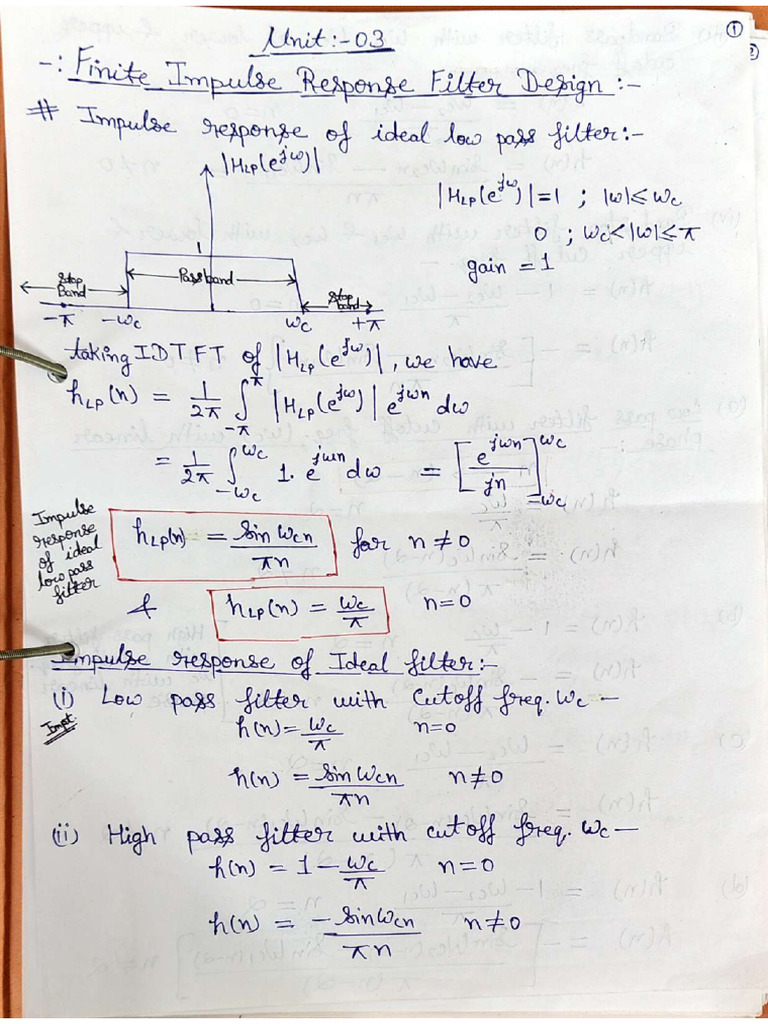 ①
Unit:-03
-: Finite Impulse Response Filter Design :-
# Impulse response of ideal low pass filter:-
|H_LP(e^{jω})|
|H_LP(e^{jω})| = 1 ; |ω| ≤ ωc
0 ; ωc < |ω| ≤ π
gain = 1
1
Stop Band
Pass band
Stop band
-π -ωc ωc +π
taking IDTFT of |H_LP(e^{jω})|, we have
h_LP(n) = 1/2π ∫_{-π}^{π} |H_LP(e^{jω})| e^{jωn} dω
= 1/2π ∫_{-ωc}^{ωc} 1. e^{jωn} dω = [e^{jωn}/jn]_{-ωc}^{ωc}
Impulse
response
of ideal
low pass
filter
h_LP(n) = sin ωcn/πn for n ≠ 0
& h_LP(n) = ωc/π n=0
Impulse response of Ideal filter:-
(i) Low pass filter with cutoff freq. ωc –
Impt.
h(n) = ωc/π n=0
h(n) = sin ωcn/πn n≠0
(ii) High pass filter with cutoff freq. ωc –
h(n) = 1 - ωc/π n=0
h(n) = -sin ωcn/πn n≠0